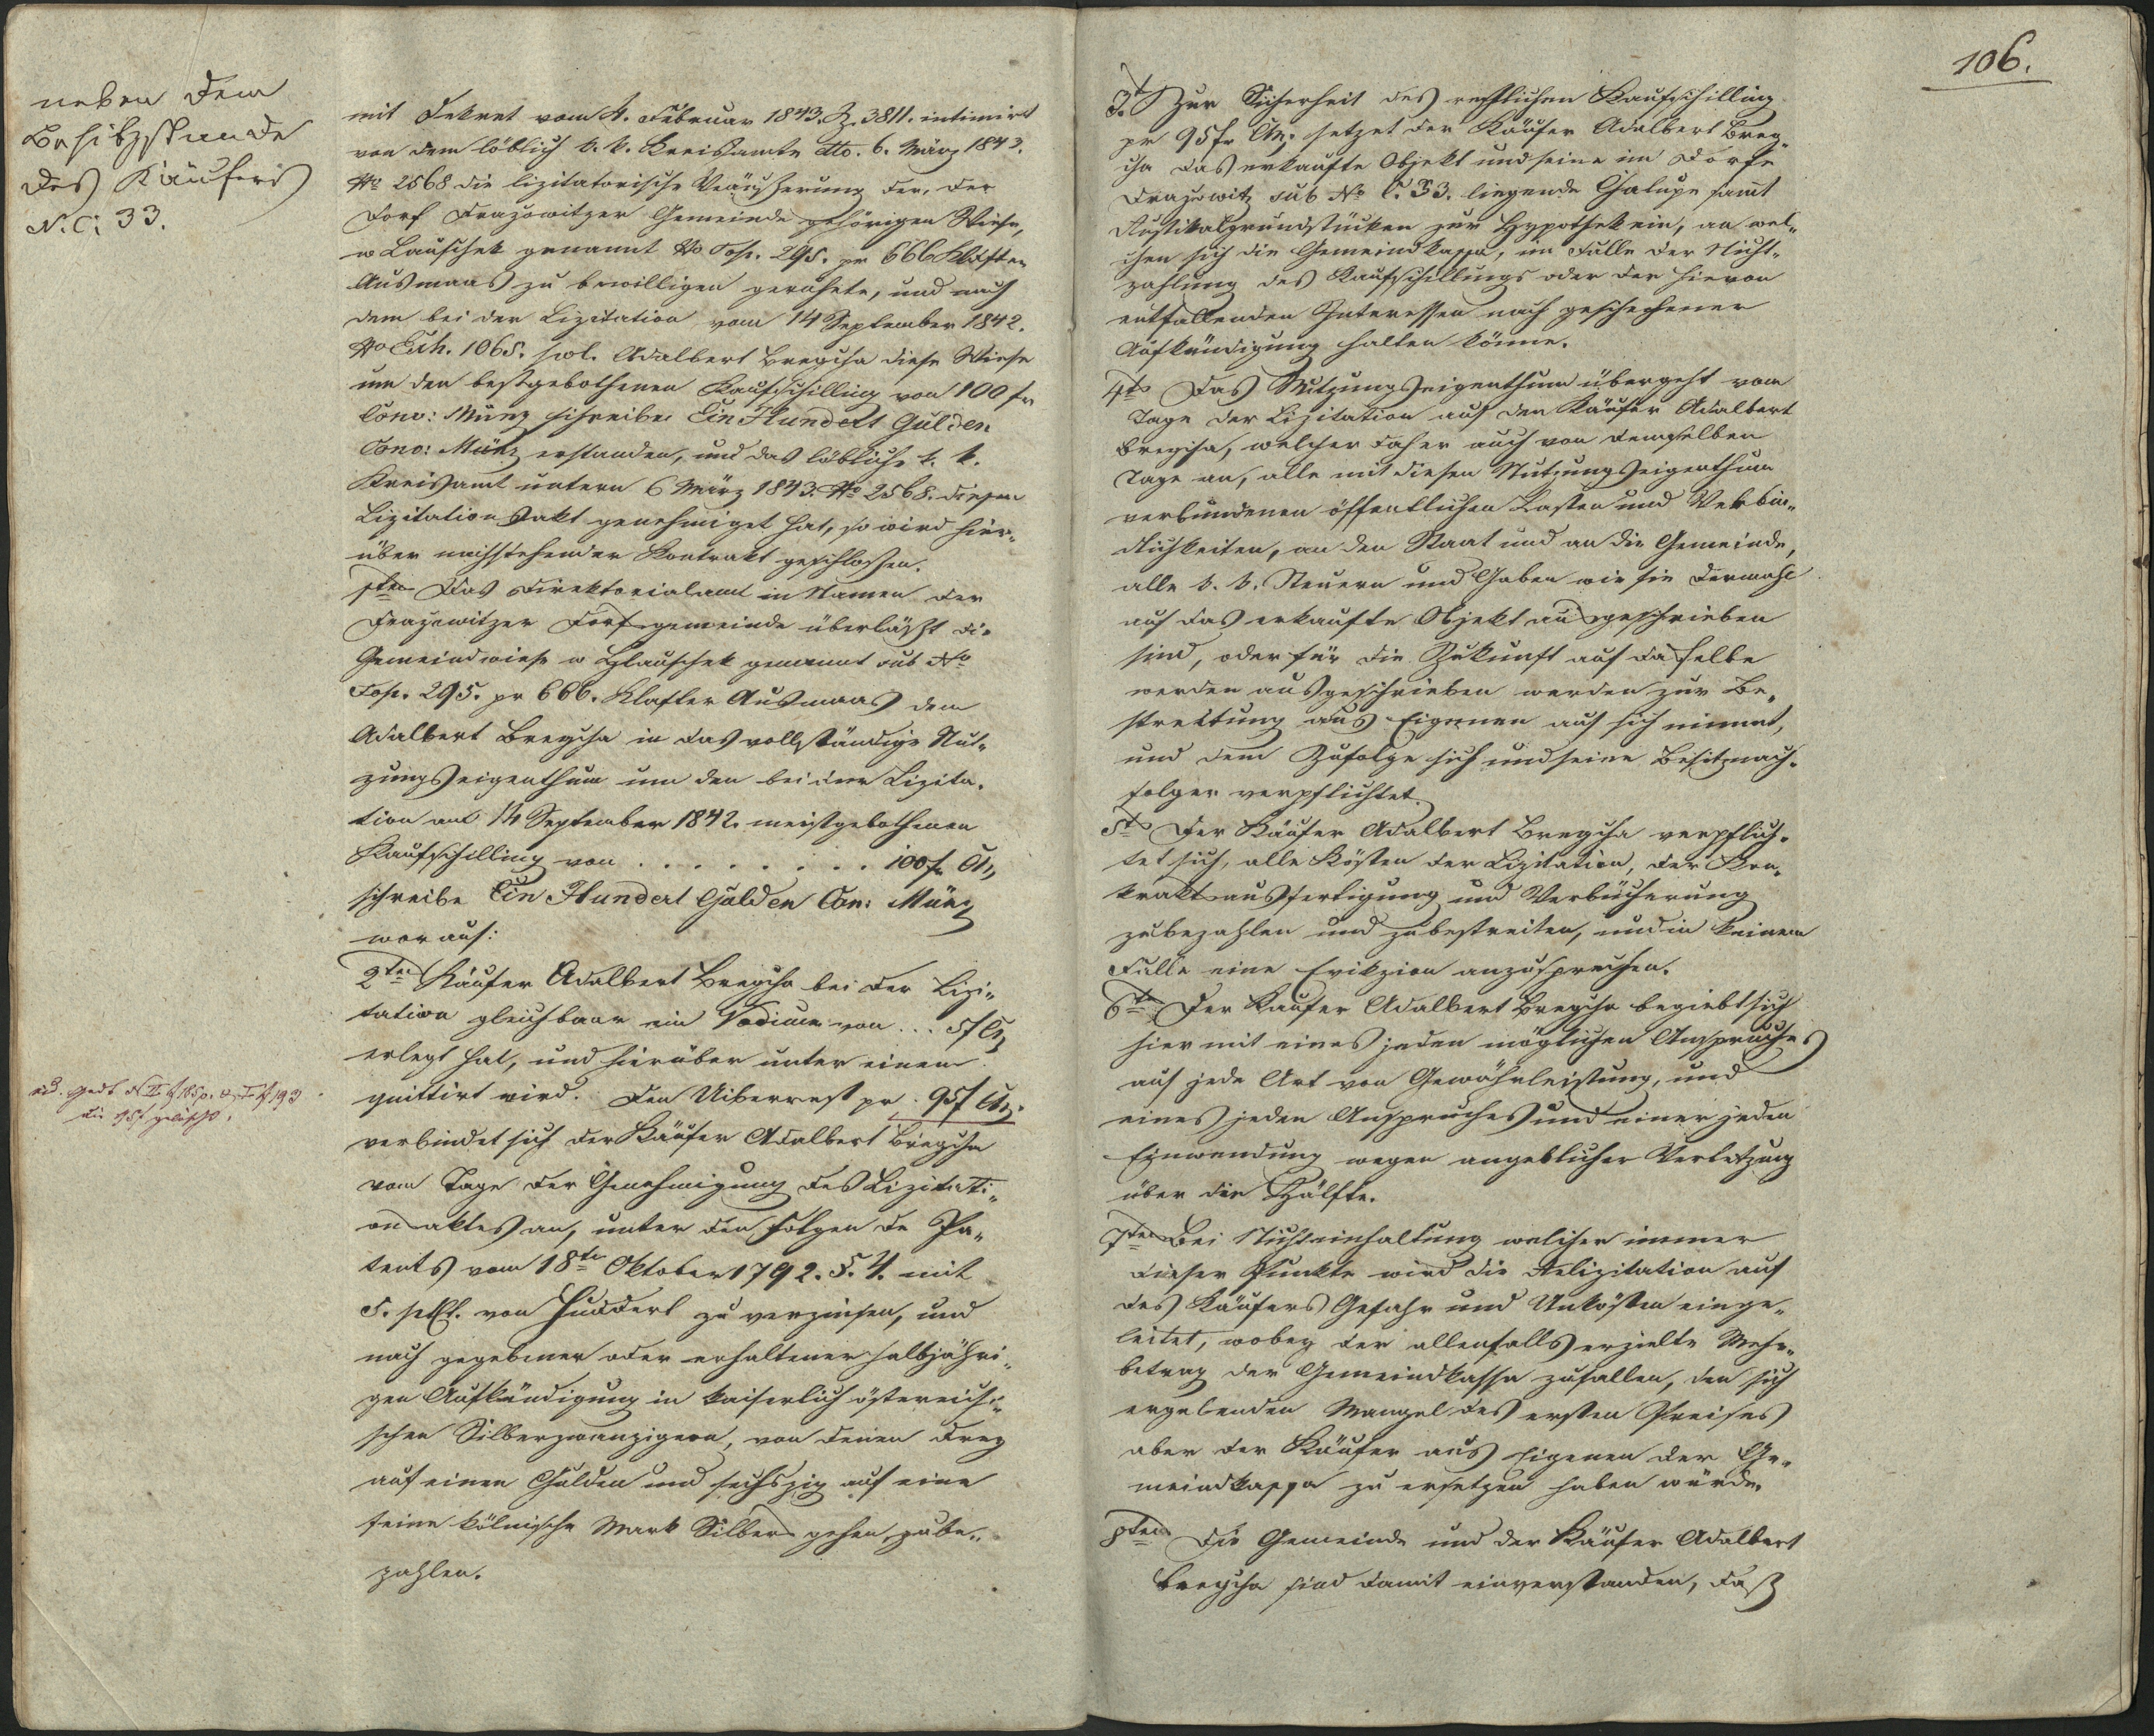 neben dem
Besitzstande
des Käufers
N. C. 33.
mit Dekret vom 4. Februar 1843. Z. 3811. intimirt
von dem löblich k. k. Kreisamte dto. 6. März 1843.
No 2568 die lizitatorische Veräußerung der, der
Dorf Drazowitzer Gemeinde gehörigen Wiese,
w Lauschek genannt No Top. 295. pr 666 Klafter
Ausmaas zu bewilligen geruhete, und nach
dem bei der Lizitation vom 14 September 1842.
No Exh. 1065. pol. Adalbert Bregcha diese Wiese
um den bestgebothenen Kaufschilling von 100 fr
Conv: Münz schreibe Ein Hundert Gulden
Conv: Münz erstanden, und das löbliche k. k.
Kreisamt untern 6 März 1843. No 2568. diesen
Lizitationsakt genehmiget hat, so wird hier„
über nachstehender Kontrakt geschlossen.
1ten Das Direktorialamt in Namen der
Drazowitzer Dorfgemeinde überläßt die
Gemeindwiese w Hlauschek genannt sub No
Top. 295. pr 666. Klafter Ausmaas dem
Adalbert Bregcha in das vollständige Nut„
zungseigenthum um den bei der Lizita„
tion am 14 September 1842. meistgebothenen
Kaufschilling von . . . . . . . . 100 fr CM„
schreibe Ein Hundert Gulden Con: Münz
worauf:
2ten Käufer Adalbert Bregcha bei der Lizi„
tation gleichbaar ein Vadium von ... 5 f CM
erlegt hat, und hierüber unter einem
quittirt wird. Den Uiberrest pr. 95 f CM.
verbindet sich der Käufer Adalbert Bregcha
vom Tage der Genehmigung des Lizitati„
onsaktes an, unter den Folgen de Pa„
tents vom 18ten Oktober 1792. §. 4. mit
5. pCt. von Hundert zu verzinsen, und
nach gegebener oder erhaltener halbjähri„
gen Aufkündigung in kaiserlich östereichi„
schen Silberzwanzigern, von denen drey
auf einen Gulden und sechszig auf eine
feine kölnische Mark Silbers gehen, zube„
zahlen.
die 95 f gelöscht.
106.
3t Zur Sicherheit des restlichen Kaufschilling
pr 95 fr CM, setzet der Käufer Adalbert Breg„
cha das erkaufte Objekt und seine im Dorfe
Drazowitz sub No C. 33. liegende Chalupe samt
Rustikalgrundstücken zur Hypothek ein, an wel„
chen sich die Gemeindkassa, im Falle der Nicht„
zahlung des Kaufschillings oder der hievon
entfallenden Interessen nach geschehener
Aufkündigung halten könne.
4t Das Nutzungseigenthum übergeht vom
Tage der Lizitation auf den Käufer Adalbert
Bregcha, welcher daher auch von demselben
Tage an, alle mit diesen Nutzungseigenthum
verbundenen öffentlichen Lasten und Verbin„
dlichkeiten, an den Staat und an die Gemeinde,
alle k. k. Steuern und Gaben wie sie dermahl
auf das erkaufte Objekt ausgeschrieben
sind, oder für die Zukunft auf dasselbe
werden ausgeschrieben werden zur Be„
streitung aus Eigenen auf sich nimmt,
und dem Zufolge sich und seine Besitznach„
folger verpflichtet.
5t Der Käufer Adalbert Bregcha verpflich„
tet sich, alle Kösten der Lizitation, der Kon„
traktsausfertigung und Verbücherung
zubezahlen und zubestreiten, und in keinem
Falle eine Evikzion anzusprechen.
6te Der Kaufer Adalbert Bregcha begiebt sich
hier mit eines jeden möglichen Anspruches
auf jede Art von Gewährleistung, und
eines jeden Anspruches und einer jeden
Einwendung wegen angeblicher Verletzung
über die Hälfte.
7ten Bei Nichteinhaltung welcher immer
dieser Punkte wird die Relizitation auf
des Käufers Gefahr und Unkösten einge„
leitet, wobey der allenfalls erzielte Mehr„
betrag der Gemeindkassa zufallen, den sich
ergebenden Mangel des ersten Preises
aber der Käufer aus eigenen der Ge„
meindkassa zu ersetzen haben würde.
8ten Die Gemeinde und der Käufer Adalbert
Bregcha sind damit einverstanden, daß